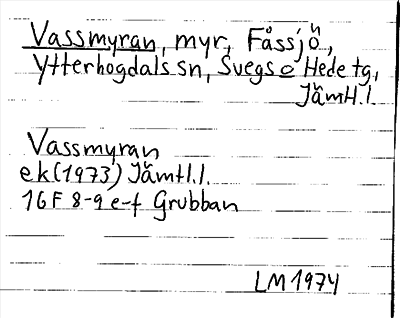 Vassmyran, myr, Fåssjö,
Ytterhogdals sn, Svegs o Hede tg,
Jämtl.l.
Vassmyran
ek (1973) Jämtl.l.
16F 8-9 e-f Grubban
LM 1974